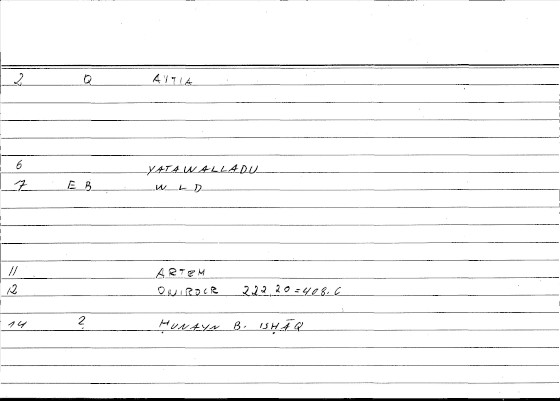 2 Q AITIA
6 YATAWALLADU
7 EB WLD
11 ARTEM
12 ONIROCR 222,20=408.6
14 ? ḤUNAYN B. ISḤĀQ